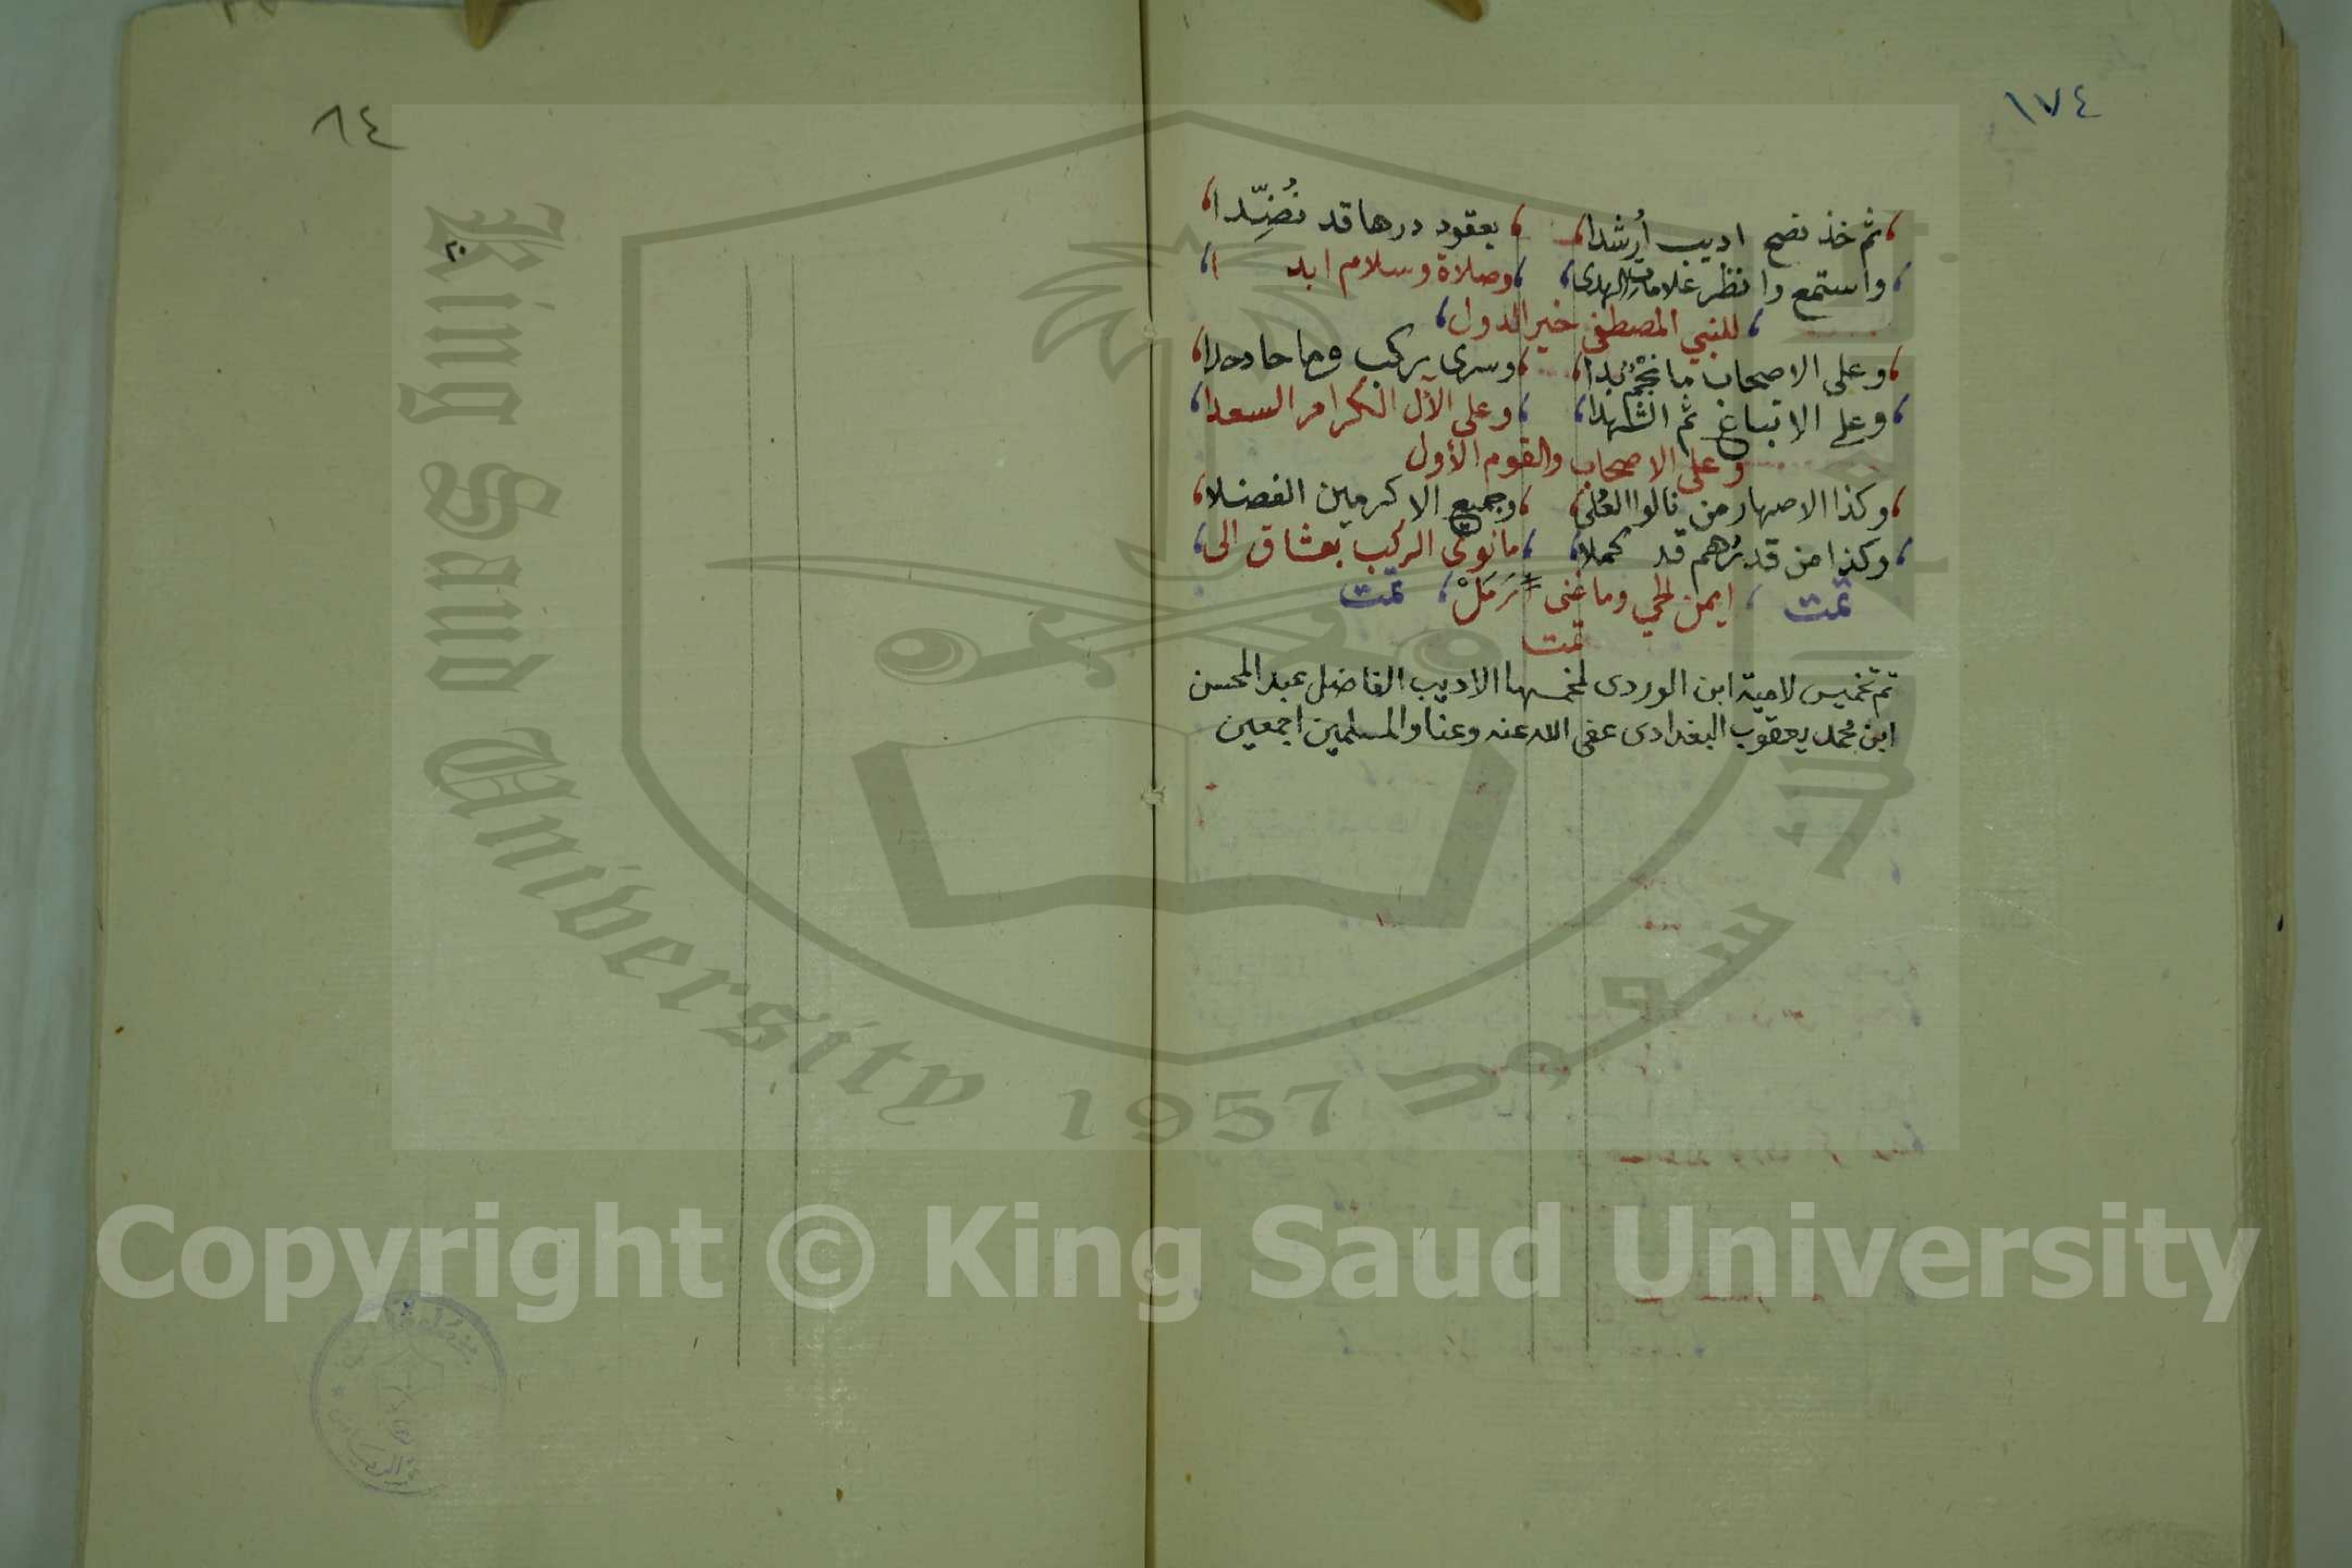 ١٧٤
ثم خذ نصح اديب أرشدا ، بعقود درها قد نُضِّدا
واستمع وانظر علامات الهدى ، وصلاة وسلام ابدا
للنبي المصطفى خير الدول
وعلى الاصحاب ما نجمٌ بدا ، وسرى بركب وما حاد حدا
وعلى الاتباع ثم الشهدا ، وعلى الآل الكرام السعدا
وعلى الاصحاب والقوم الأول
وكذا الاصهار من نالوا العُلى ، وجميع الاكرمين الفضلا
وكذا من قد برّهم قد كملا ، ما نوى الركب بعشاق الى
تمت ، ايمن الحي وما غنى رَمَلْ ، تمت
تمت
تم تخميس لامية ابن الوردى لمخمسها الاديب الفاضل عبد المحسن
ابن محمد يعقوب البغدادى عفى الله عنه وعنا والمسلمين اجمعين
٨٤
٢٠
King Saud University 1957
Copyright © King Saud University